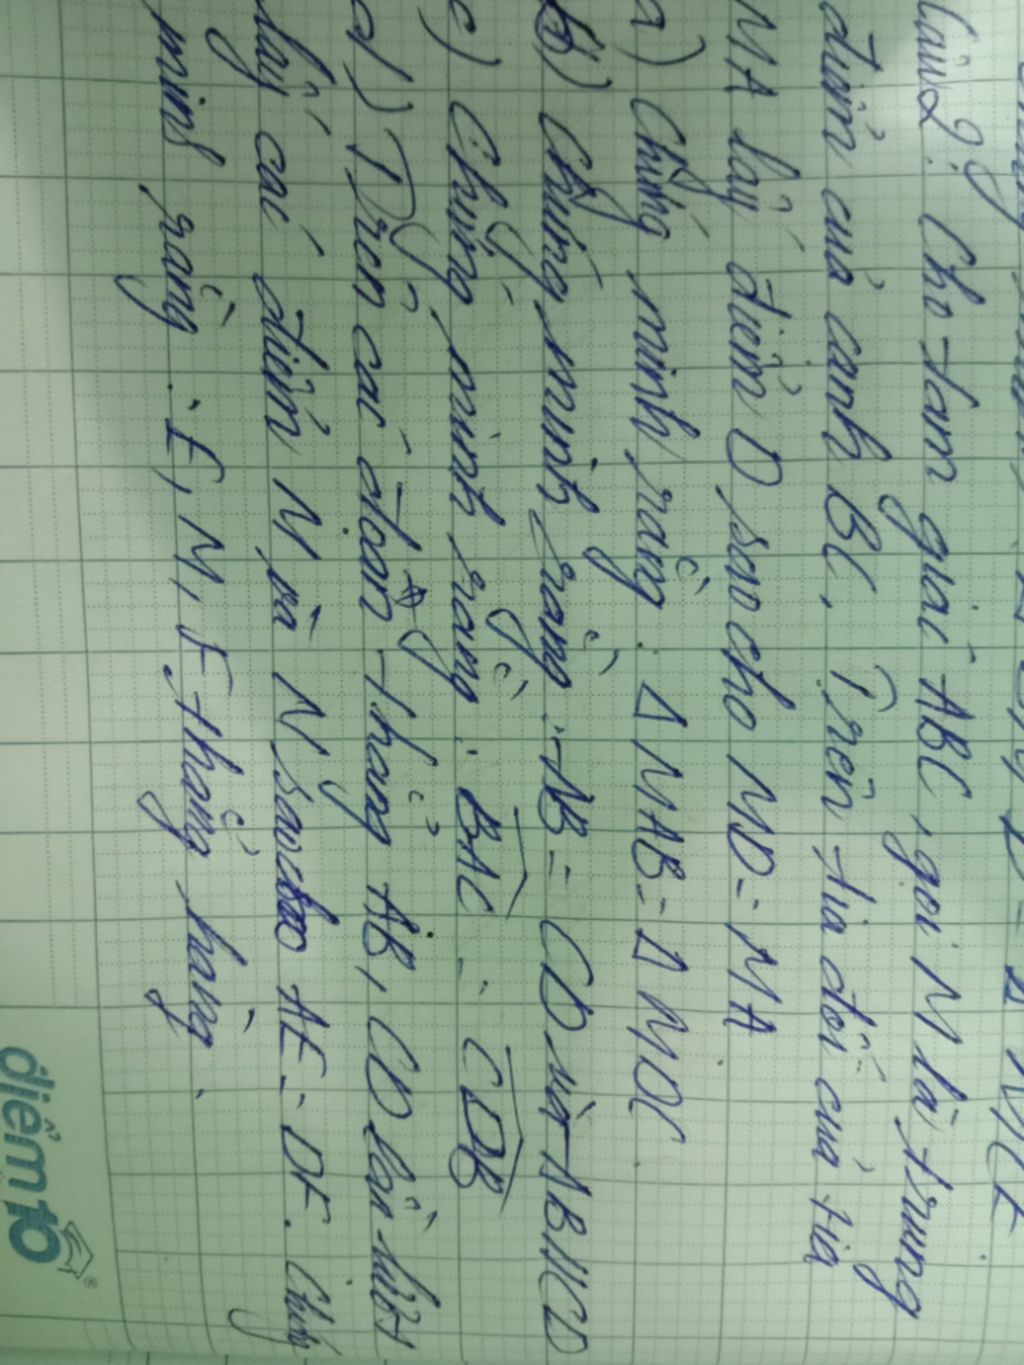 Câu 2: Cho tam giác ABC, gọi M là trung
điểm của cạnh BC. Trên tia đối của tia
MA lấy điểm D sao cho MD = MA
a) Chứng minh rằng: Δ MAB = Δ MDC.
b) Chứng minh rằng: AB = CD và AB // CD
c) Chứng minh rằng: BAC = CDB
d) Trên các đoạn thẳng AB, CD lần lượt
lấy các điểm M và N sao cho AE = DF. Chứng
minh rằng: E, M, F thẳng hàng.
điểm 10